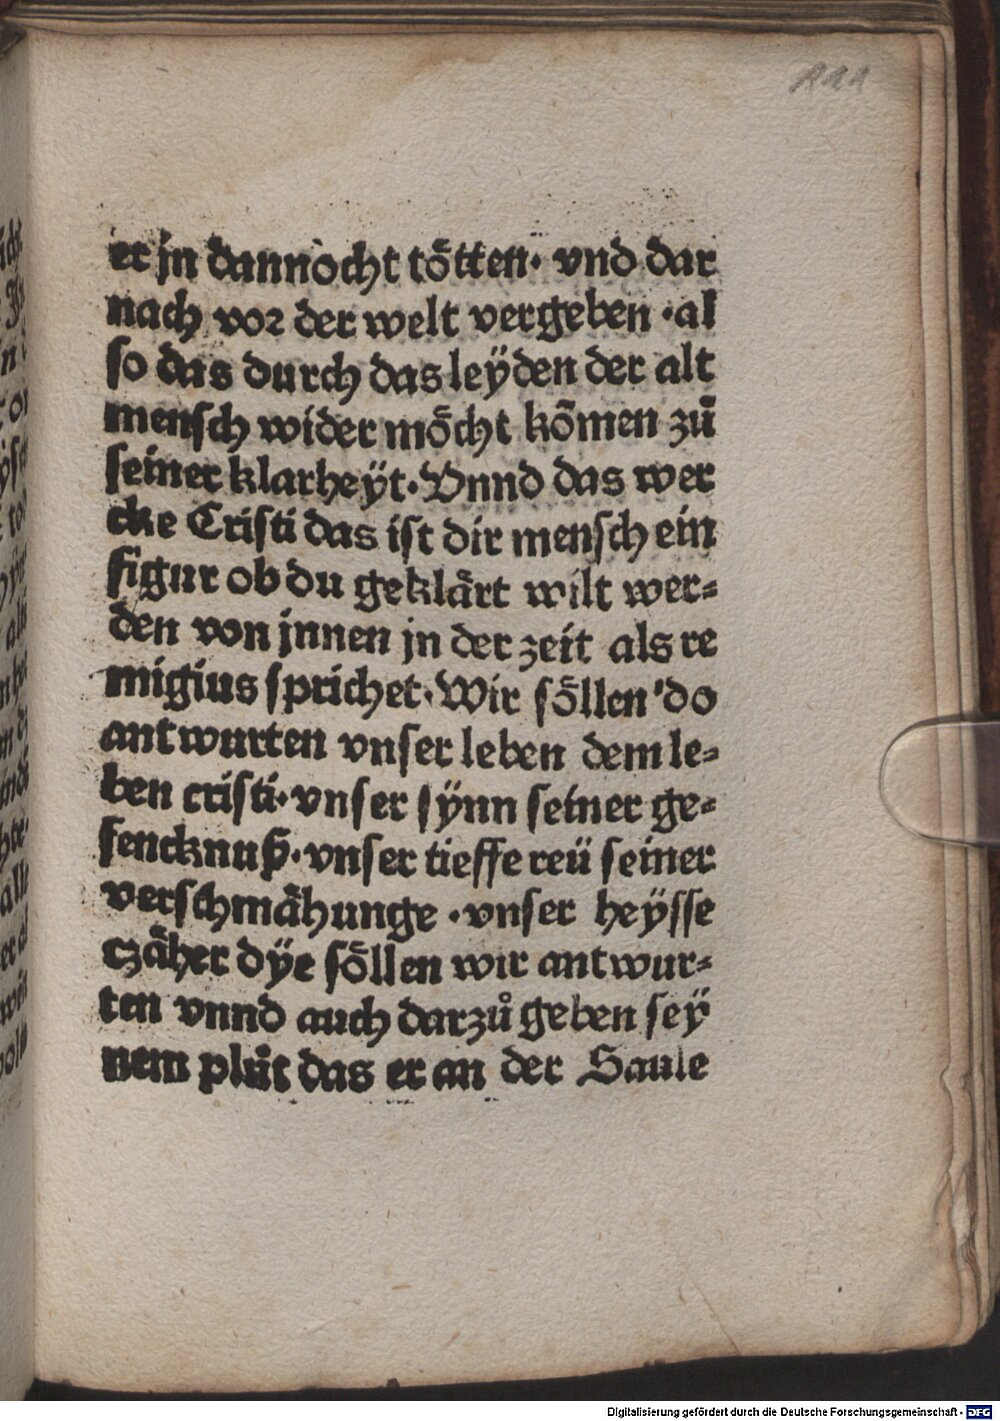 er jn dannocht tötten· vnd dar
nach vor der welt vergeben ·al
so das durch das leÿden der alt
mensch wider möcht kōmen zů
seiner klarheÿt· Vnnd das wer
cke Cristi das ist dir mensch ein
figur ob du geklärt wilt wer⸗
den von jnnen jn der zeit als re
migius sprichet· Wir söllen do
antwurten vnser leben dem le⸗
ben cristi· vnser sÿnn seiner ge⸗
fencknuß· vnser tieffe reü seiner
verschmähunge ·vnser heÿsse
czäher dÿe söllen wir antwur⸗
ten vnnd auch darzů geben seÿ
nem plůt das er an der Saule
111
Digitalisierung gefördert durch die Deutsche Forschungsgemeinschaft - DFG